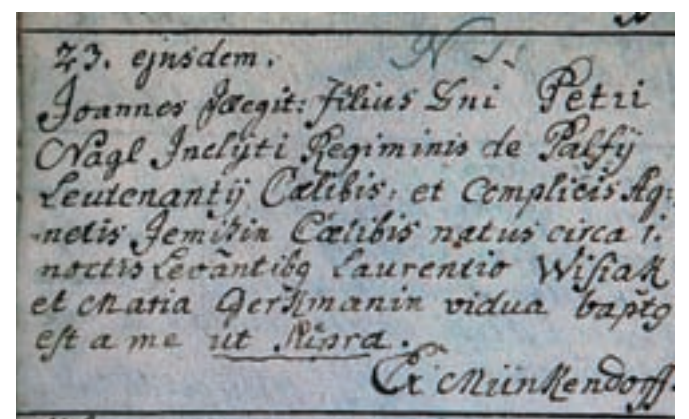 23. ejusdem. N
Joannes illegit: filius Dni Petri
Nagl Inclyti Regiminis de Palfÿ
Leutenantÿ Cælibis, et Complicis Ag:
netis Cælibis natus circa 1.
noctis Levantibq Laurentio Wisiak
et Maria Gerkmanin vidua baptq
est a me ut supra.
Ex Münkendorff.